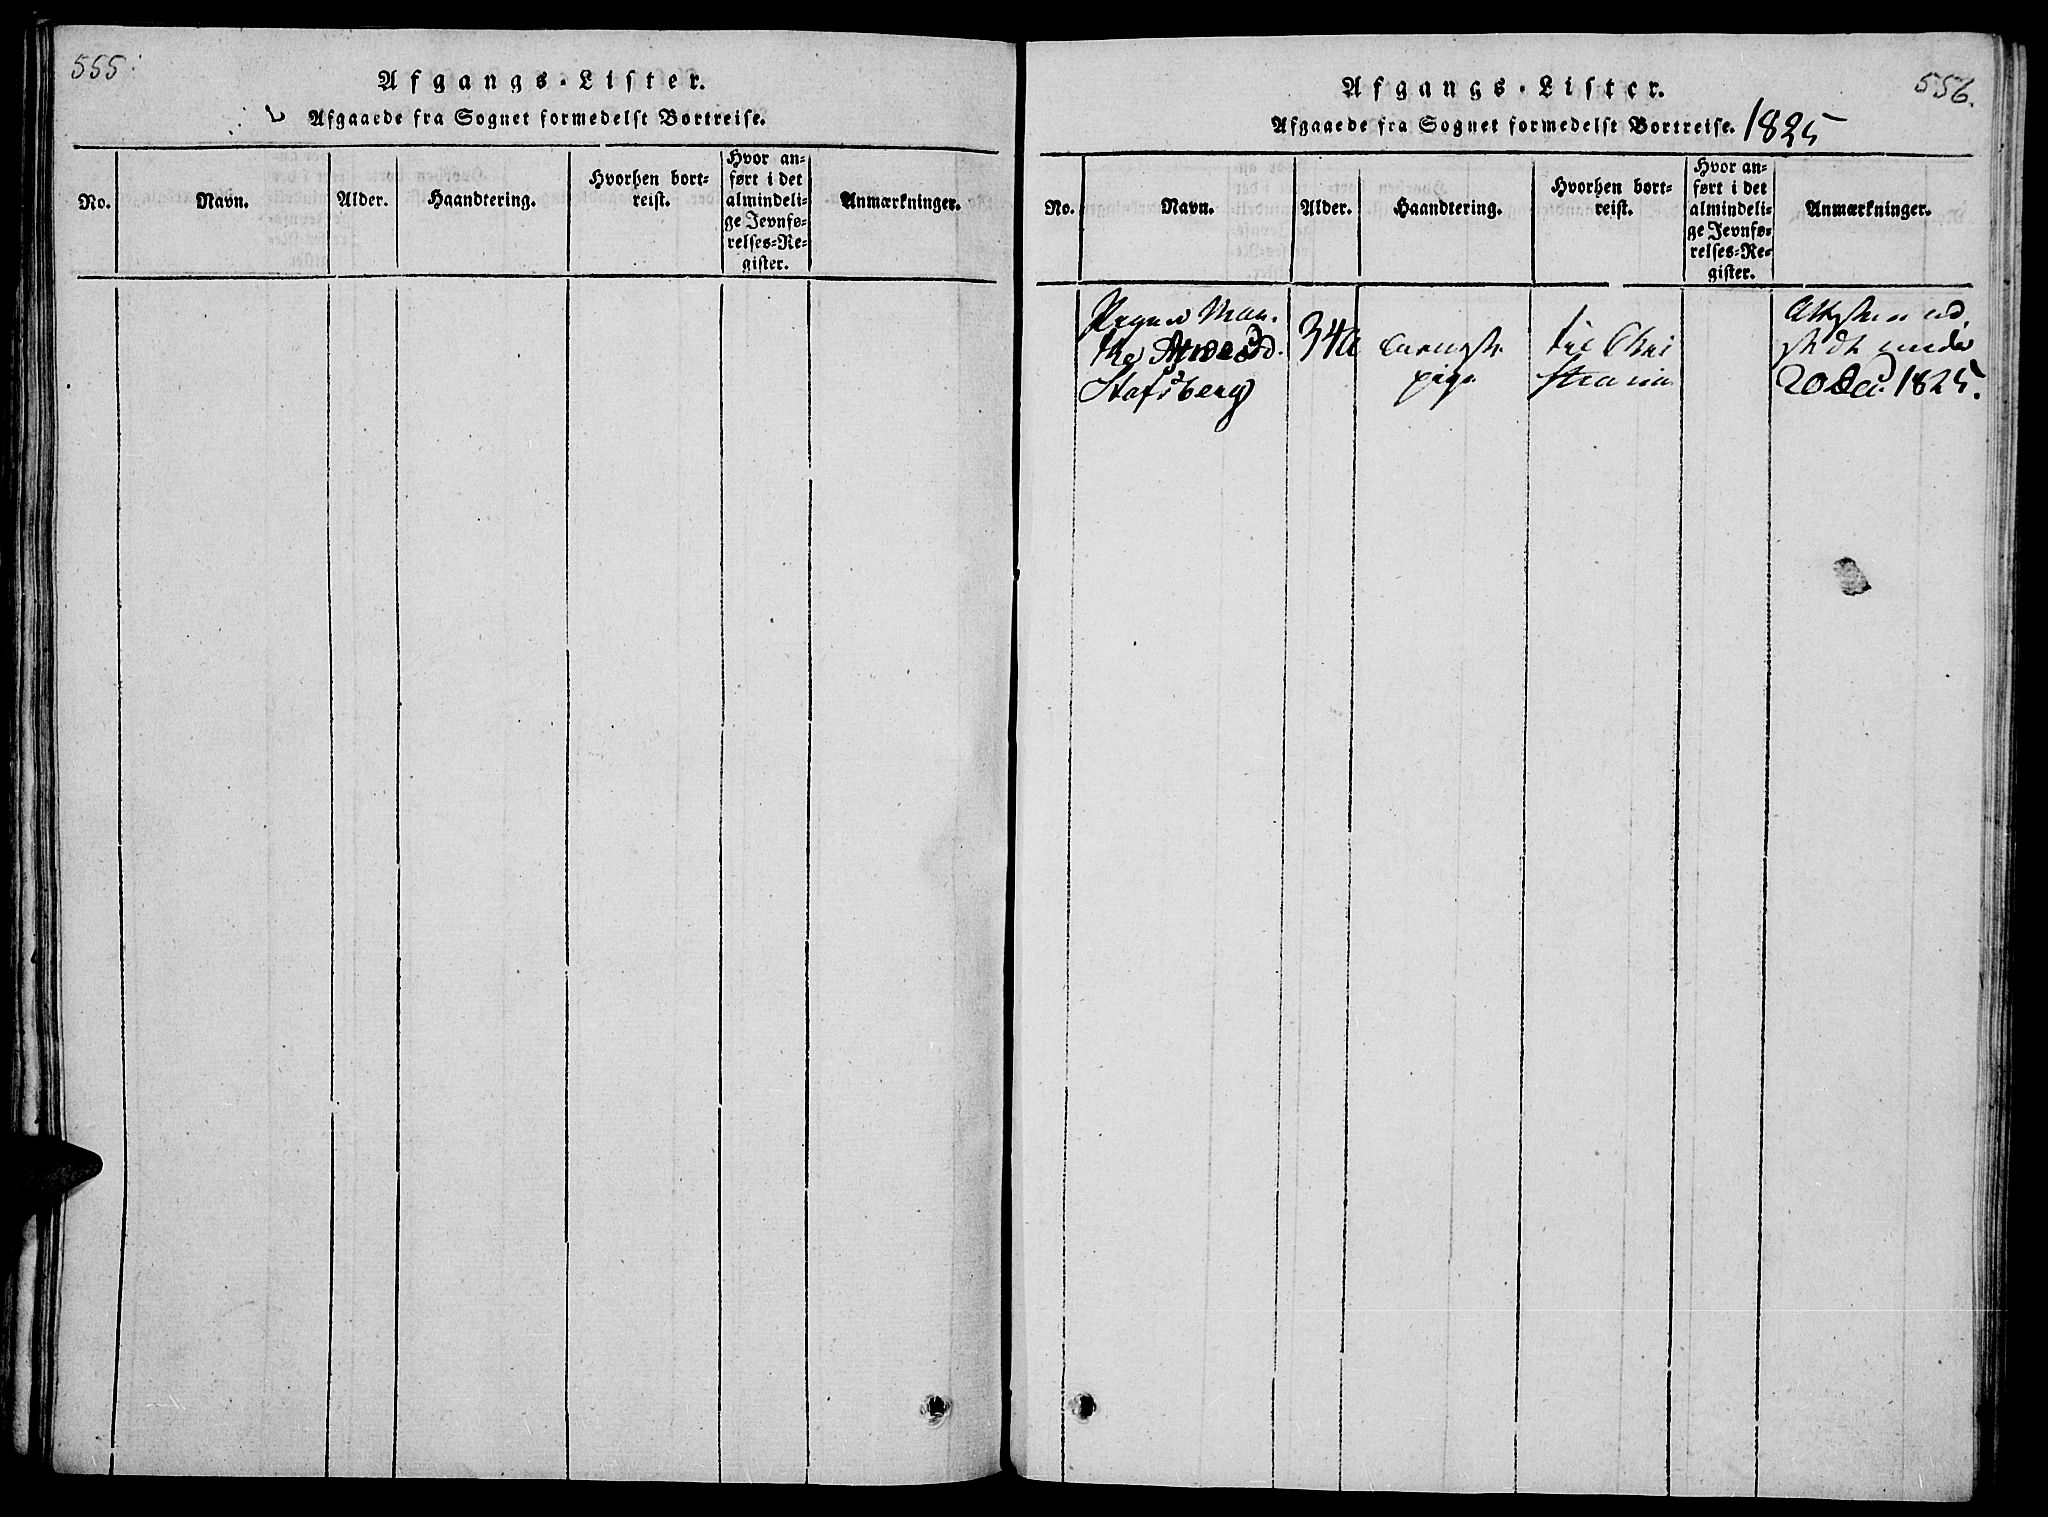 555.
Afgangs-Lister.
Afgaaede fra Sognet formedelst Bortreise.
No.
Navn.
Alder.
Haandtering.
Hvorhen bort-
reist.
Hvor an-
ført i det
almindeli-
ge Jevnfø-
relses-Re-
gister.
Anmærkninger.
556.
Afgangs-Lister.
Afgaaede fra Sognet formedelst Bortreise. 1825
No.
Navn.
Alder.
Haandtering.
Hvorhen bort-
reist.
Hvor an-
ført i det
almindeli-
ge Jevnfø-
relses-Re-
gister.
Anmærkninger.
Mar-
the
Stafsberg
34
pige
til Chri
stiania
Attesten ud,
stedt under
20 Dec. 1825.